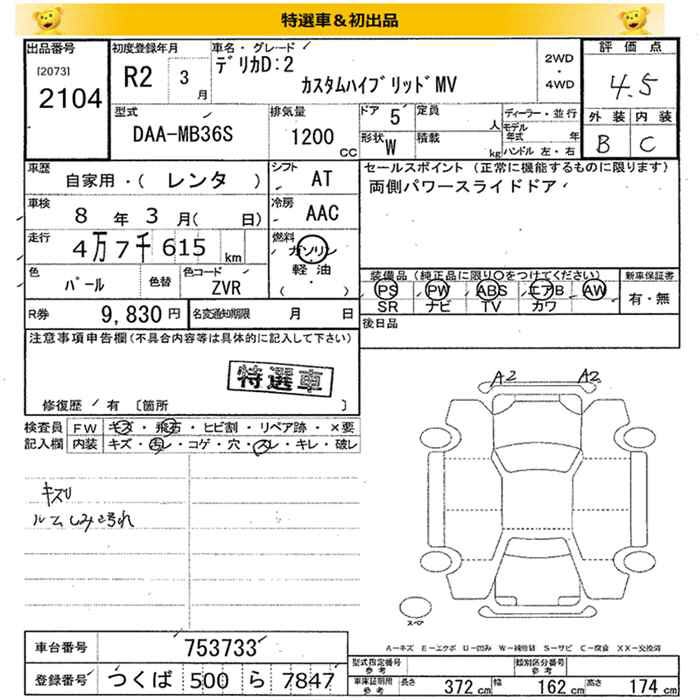 特選車＆初出品
出品番号 初度登録年月 車名・グレード 評価点
[2073] R2 3月 デリカD:2 2WD・4WD 4.5
2104 カスタムハイブリッドMV
型式 排気量 ドア 5 定員 人 ディーラー・並行 外装 内装
DAA-MB36S 1200 CC 形状 W 積載 kg モデル年式 年 ハンドル 左・右 B C
車歴 自家用・(レンタ) シフト AT セールスポイント (正常に機能するものに限ります)
車検 8年3月(日) 冷房 AAC 両側パワースライドドア
走行 4万7千615km 燃料 ガソリン 軽油 (・)
色 パール 色替 色コード ZVR 装備品(純正品に限り○をつけてください) 新車保証書
PS PW ABS エアB AW 有・無
SR ナビ TV カワ
R券 9,830円 名変通知期限 月 日 後日品
注意事項申告欄(不具合内容等は具体的に記入して下さい)
特選車
修復歴 / 有 [箇所 ]
A2 A2
検査員 FW キズ・飛石・ヒビ割・リペア跡・×要
記入欄 内装 キズ・汚レ・コゲ・穴・スレ・キレ・破レ
キズU
ルームしみ汚れ
スペア
A-キズ E-エクボ U-凹み W-補修跡 S-サビ C-腐食 XX-交換済
車台番号 753733
登録番号 つくば 500 ら 7847
型式指定番号 参考 類別区分番号 参考
車庫証明用 参考 長さ 372cm 幅 162cm 高さ 174cm